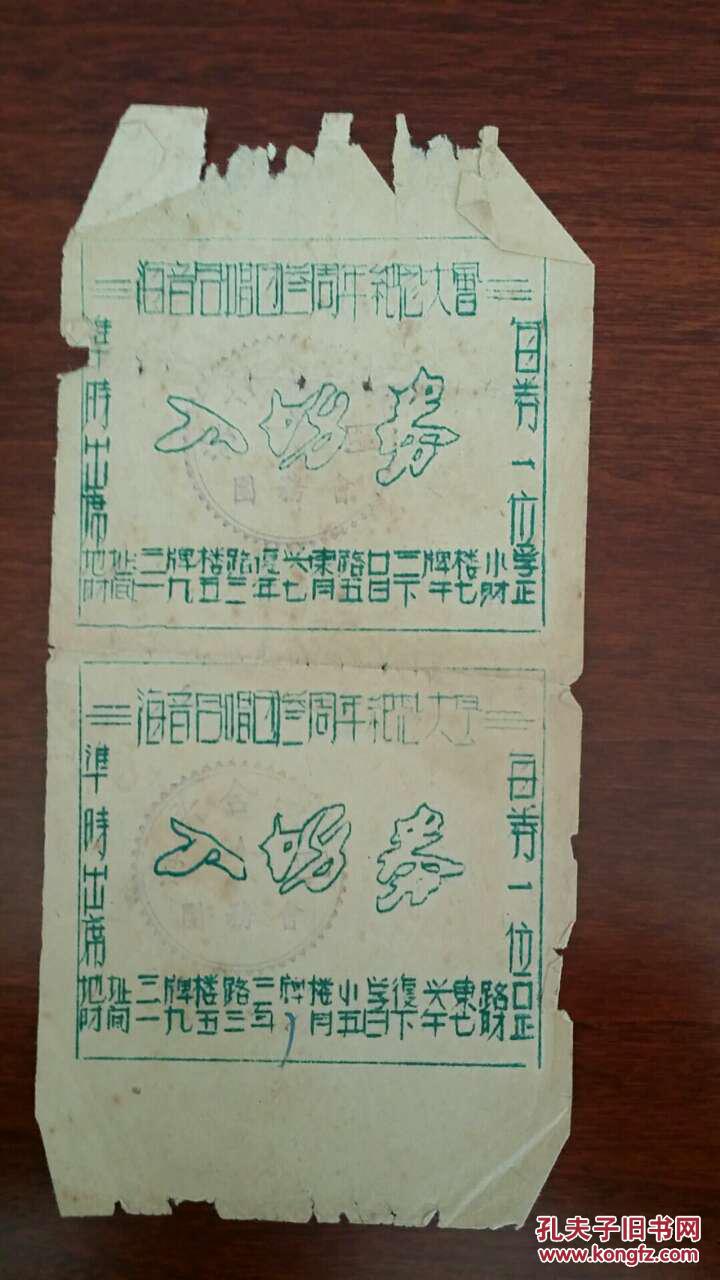 海音合唱团叁周年紀念大會
每券一位
入場券
準時出席
地址三牌楼路復兴東路口三牌楼小学
时间一九五三年七月五日下午七时正
海音合唱团叁周年紀念大会
每券一位
入場券
準時出席
地址三牌楼路三牌楼小学復兴東路口
时间一九五三年 月五日下午七时正
孔夫子旧书网
www.kongfz.com